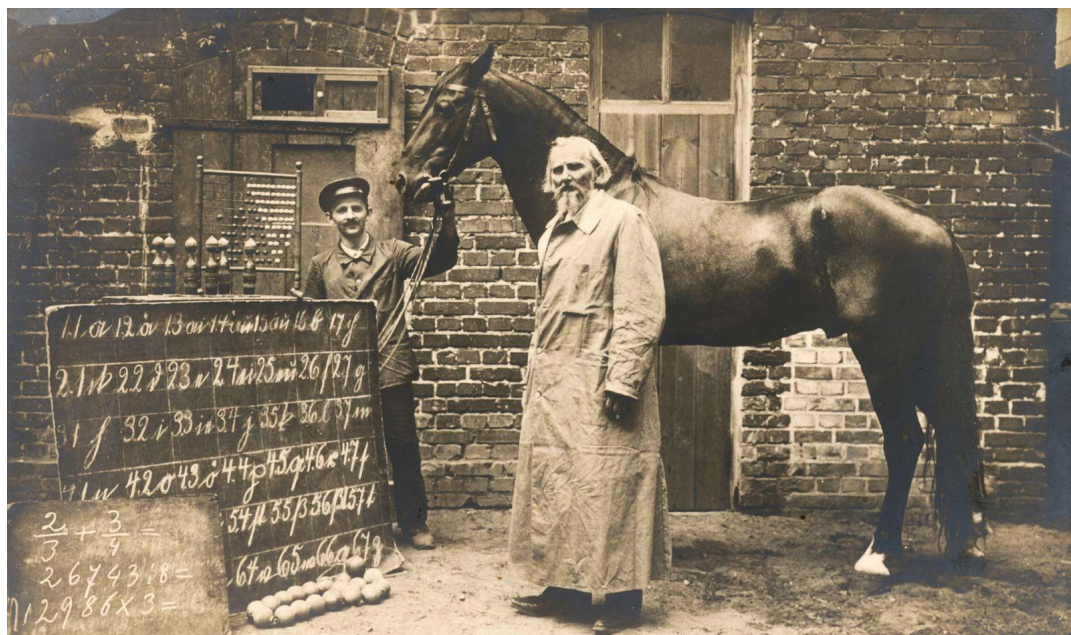 11 a 12 ä 13 au 14 äu 15 16 b 17
21 22 d 23 e 24 ei 25 eu 26 f 27 g
31 h 32 i 33 ie 34 j 35 k 36 l 37 m
41 n 42 o 43 ö 44 p 45 q 46 r 47 f
54 55 56 57 t
64 65 w 66 67
2/3 + 3/4 =
26743:8=
12986x3=